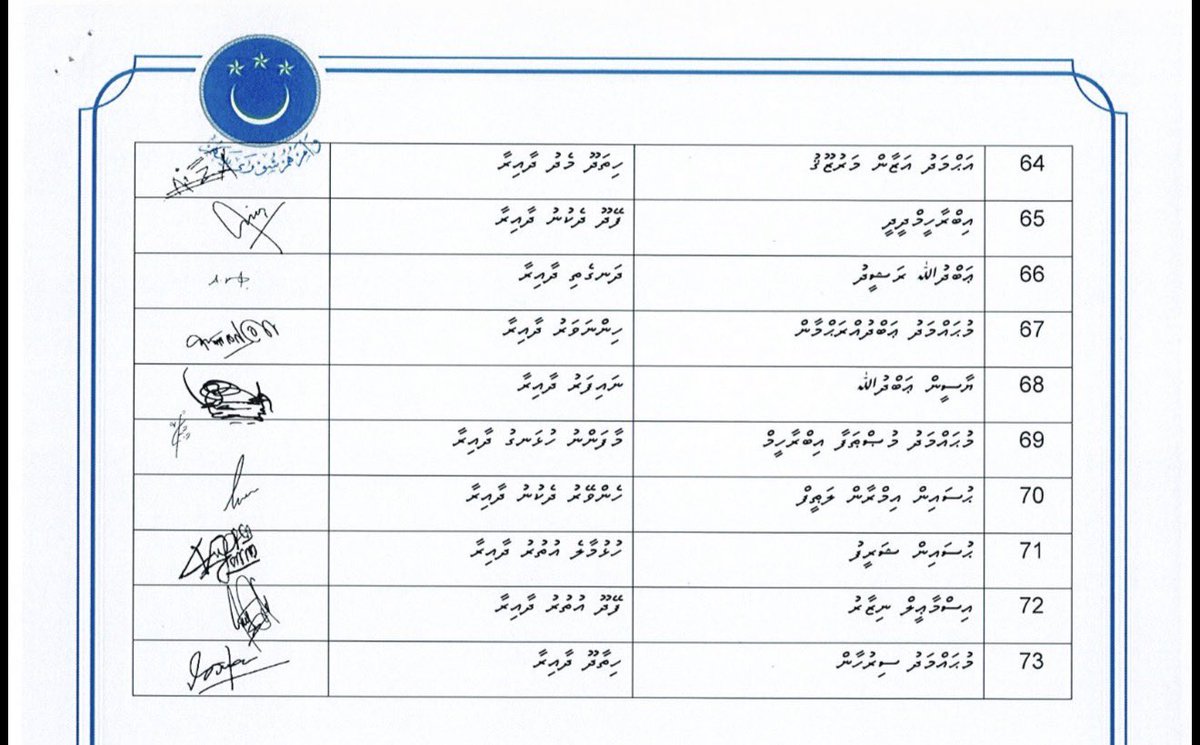 64 އަޙްމަދު އަޒާން މަރުޒޫޤު ހިތަދޫ މެދު ދާއިރާ
65 އިބްރާހީމްދީދީ ފޭދޫ ދެކުނު ދާއިރާ
66 ޢަބްދުﷲ ރަޝީދު ދަނގެތި ދާއިރާ
67 މުޙައްމަދު ޢަބްދުއްރަޙްމާން ހިންނަވަރު ދާއިރާ
68 ޔާސީން ޢަބްދުﷲ ނައިފަރު ދާއިރާ
69 މުޙައްމަދު މުޞްޠަފާ އިބްރާހީމް މާފަންނު ހުޅަނގު ދާއިރާ
70 ޙުސައިން އިމްރާން ލަޠީފް ހެންވޭރު ދެކުނު ދާއިރާ
71 ޙުސައިން ޝަރީފު ހުޅުމާލެ އުތުރު ދާއިރާ
72 އިސްމާޢީލް ނިޒާރު ފޭދޫ އުތުރު ދާއިރާ
73 މުޙައްމަދު ސިރުހާން ހިތާދޫ ދާއިރާ